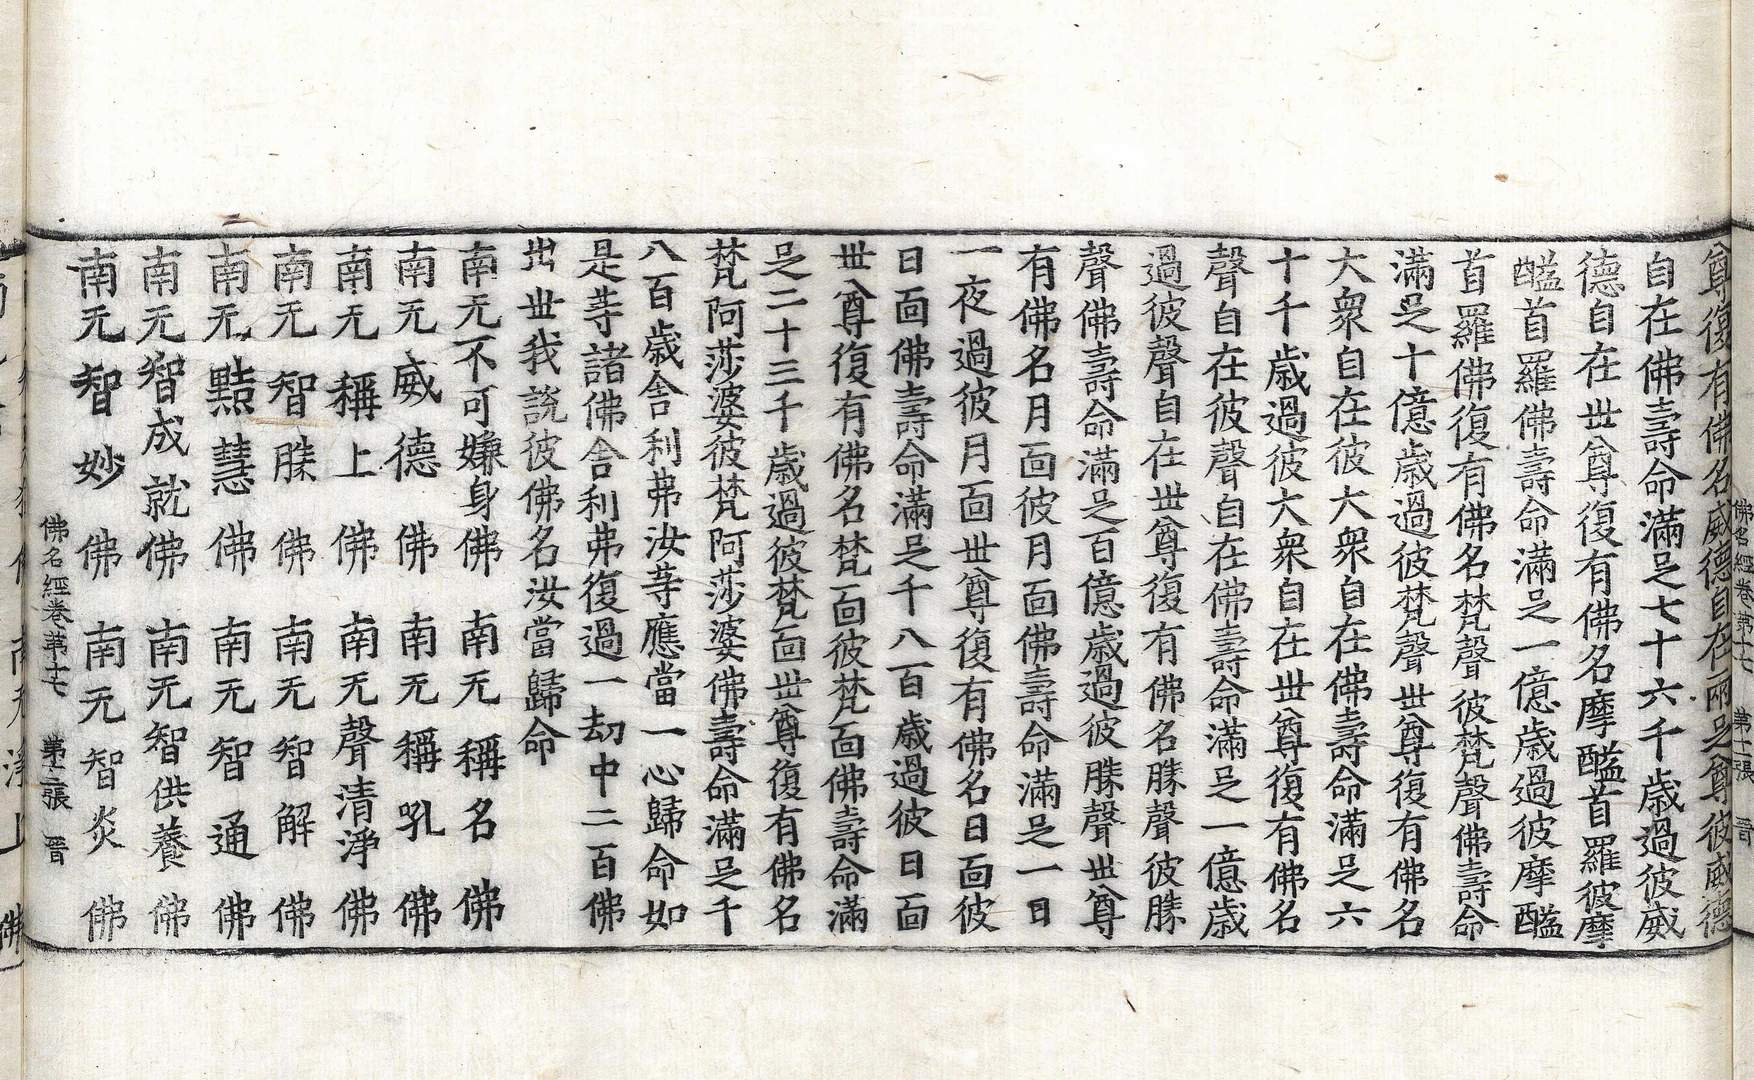 尊復有佛名威德自在兩足尊彼威德
自在佛壽命滿足七十六千歲過彼威
德自在世尊復有佛名摩醯首羅彼摩
醯首羅佛壽命滿足一億歲過彼摩醯
首羅佛復有佛名梵聲彼梵聲佛壽命
滿足十億歲過彼梵聲世尊復有佛名
大衆自在彼大衆自在佛壽命滿足六
十千歲過彼大衆自在世尊復有佛名
聲自在彼聲自在佛壽命滿足一億歲
過彼聲自在世尊復有佛名勝聲彼勝
聲佛壽命滿足百億歲過彼勝聲世尊
有佛名月面彼月面佛壽命滿足一日
一夜過彼月面世尊復有佛名日面彼
日面佛壽命滿足千八百歲過彼日面
世尊復有佛名梵面彼梵面佛壽命滿
足二十三千歲過彼梵面世尊復有佛名
梵阿莎婆彼梵阿莎婆佛壽命滿足千
八百歲舍利弗汝等應當一心歸命如
是等諸佛舍利弗復過一劫中二百佛
出世我說彼佛名汝當歸命
南无不可嫌身佛 南无稱名佛
南无威德佛 南无稱吼佛
南无稱上佛 南无聲清淨佛
南无智勝佛 南无智解佛
南无黠慧佛 南无智通佛
南无智成就佛 南无智供養佛
南无智妙佛 南无智炎佛
佛名經卷第十七 第十二張 晉